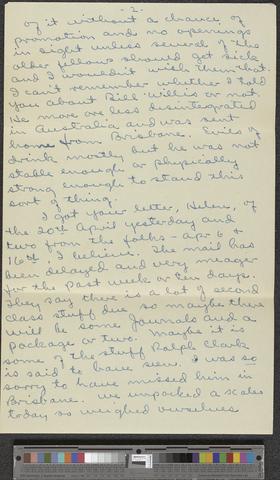 - 2 -
of it without a chance of
promotion and no openings
in sight unless several of the
older fellows should get sick
and I wouldn't wish them that.
I can't remember whether I told
you about Bill Willis or not.
He more or less disintegrated
in Australia and was sent
home from Brisbane. Evils of
drink mostly but he was not
stable enough or physically
strong enough to stand this
sort of thing.
I got your letter, Helene, of
the 20th April yesterday and
two from the folks - apr 6 &
16th, I believe. The mail has
been delayed and very meager
for the past week or ten days.
They say there is a lot of second
class stuff due so maybe there
will be some Journals and a
package or two. Maybe it is
some of the stuff Ralph Clark
is said to have seen. I was so
sorry to have missed him in
Brisbane. We unpacked a scales
today so weighed ourselves